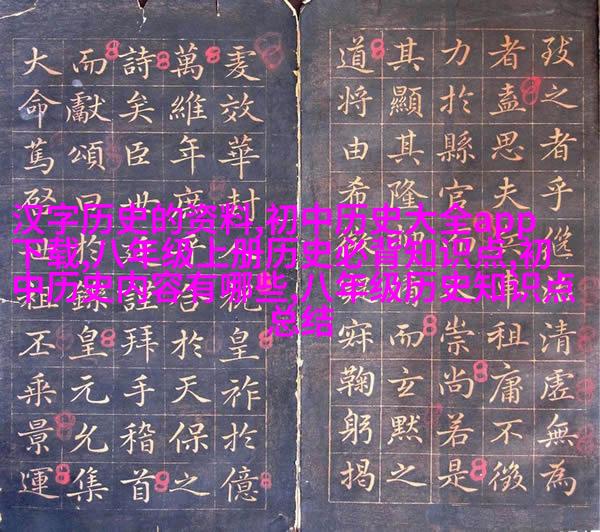 汉字历史的资料,初中历史大全app
下载,八年级上册历史必背知识点,初
中历史内容有哪些,八年级历史知识点
总结
之者乎清虛無為
者盍思夫祖庸不徵
力於縣官而崇尚若是
其顯其隆而玄默之
道將由希躬揭
效華封祝皇祚於億
萬維年言於天保之
詩矣臣世謹拜手稽首
而獻頌曰於鑠皇元允集
大命篤啓祖丕乘景運